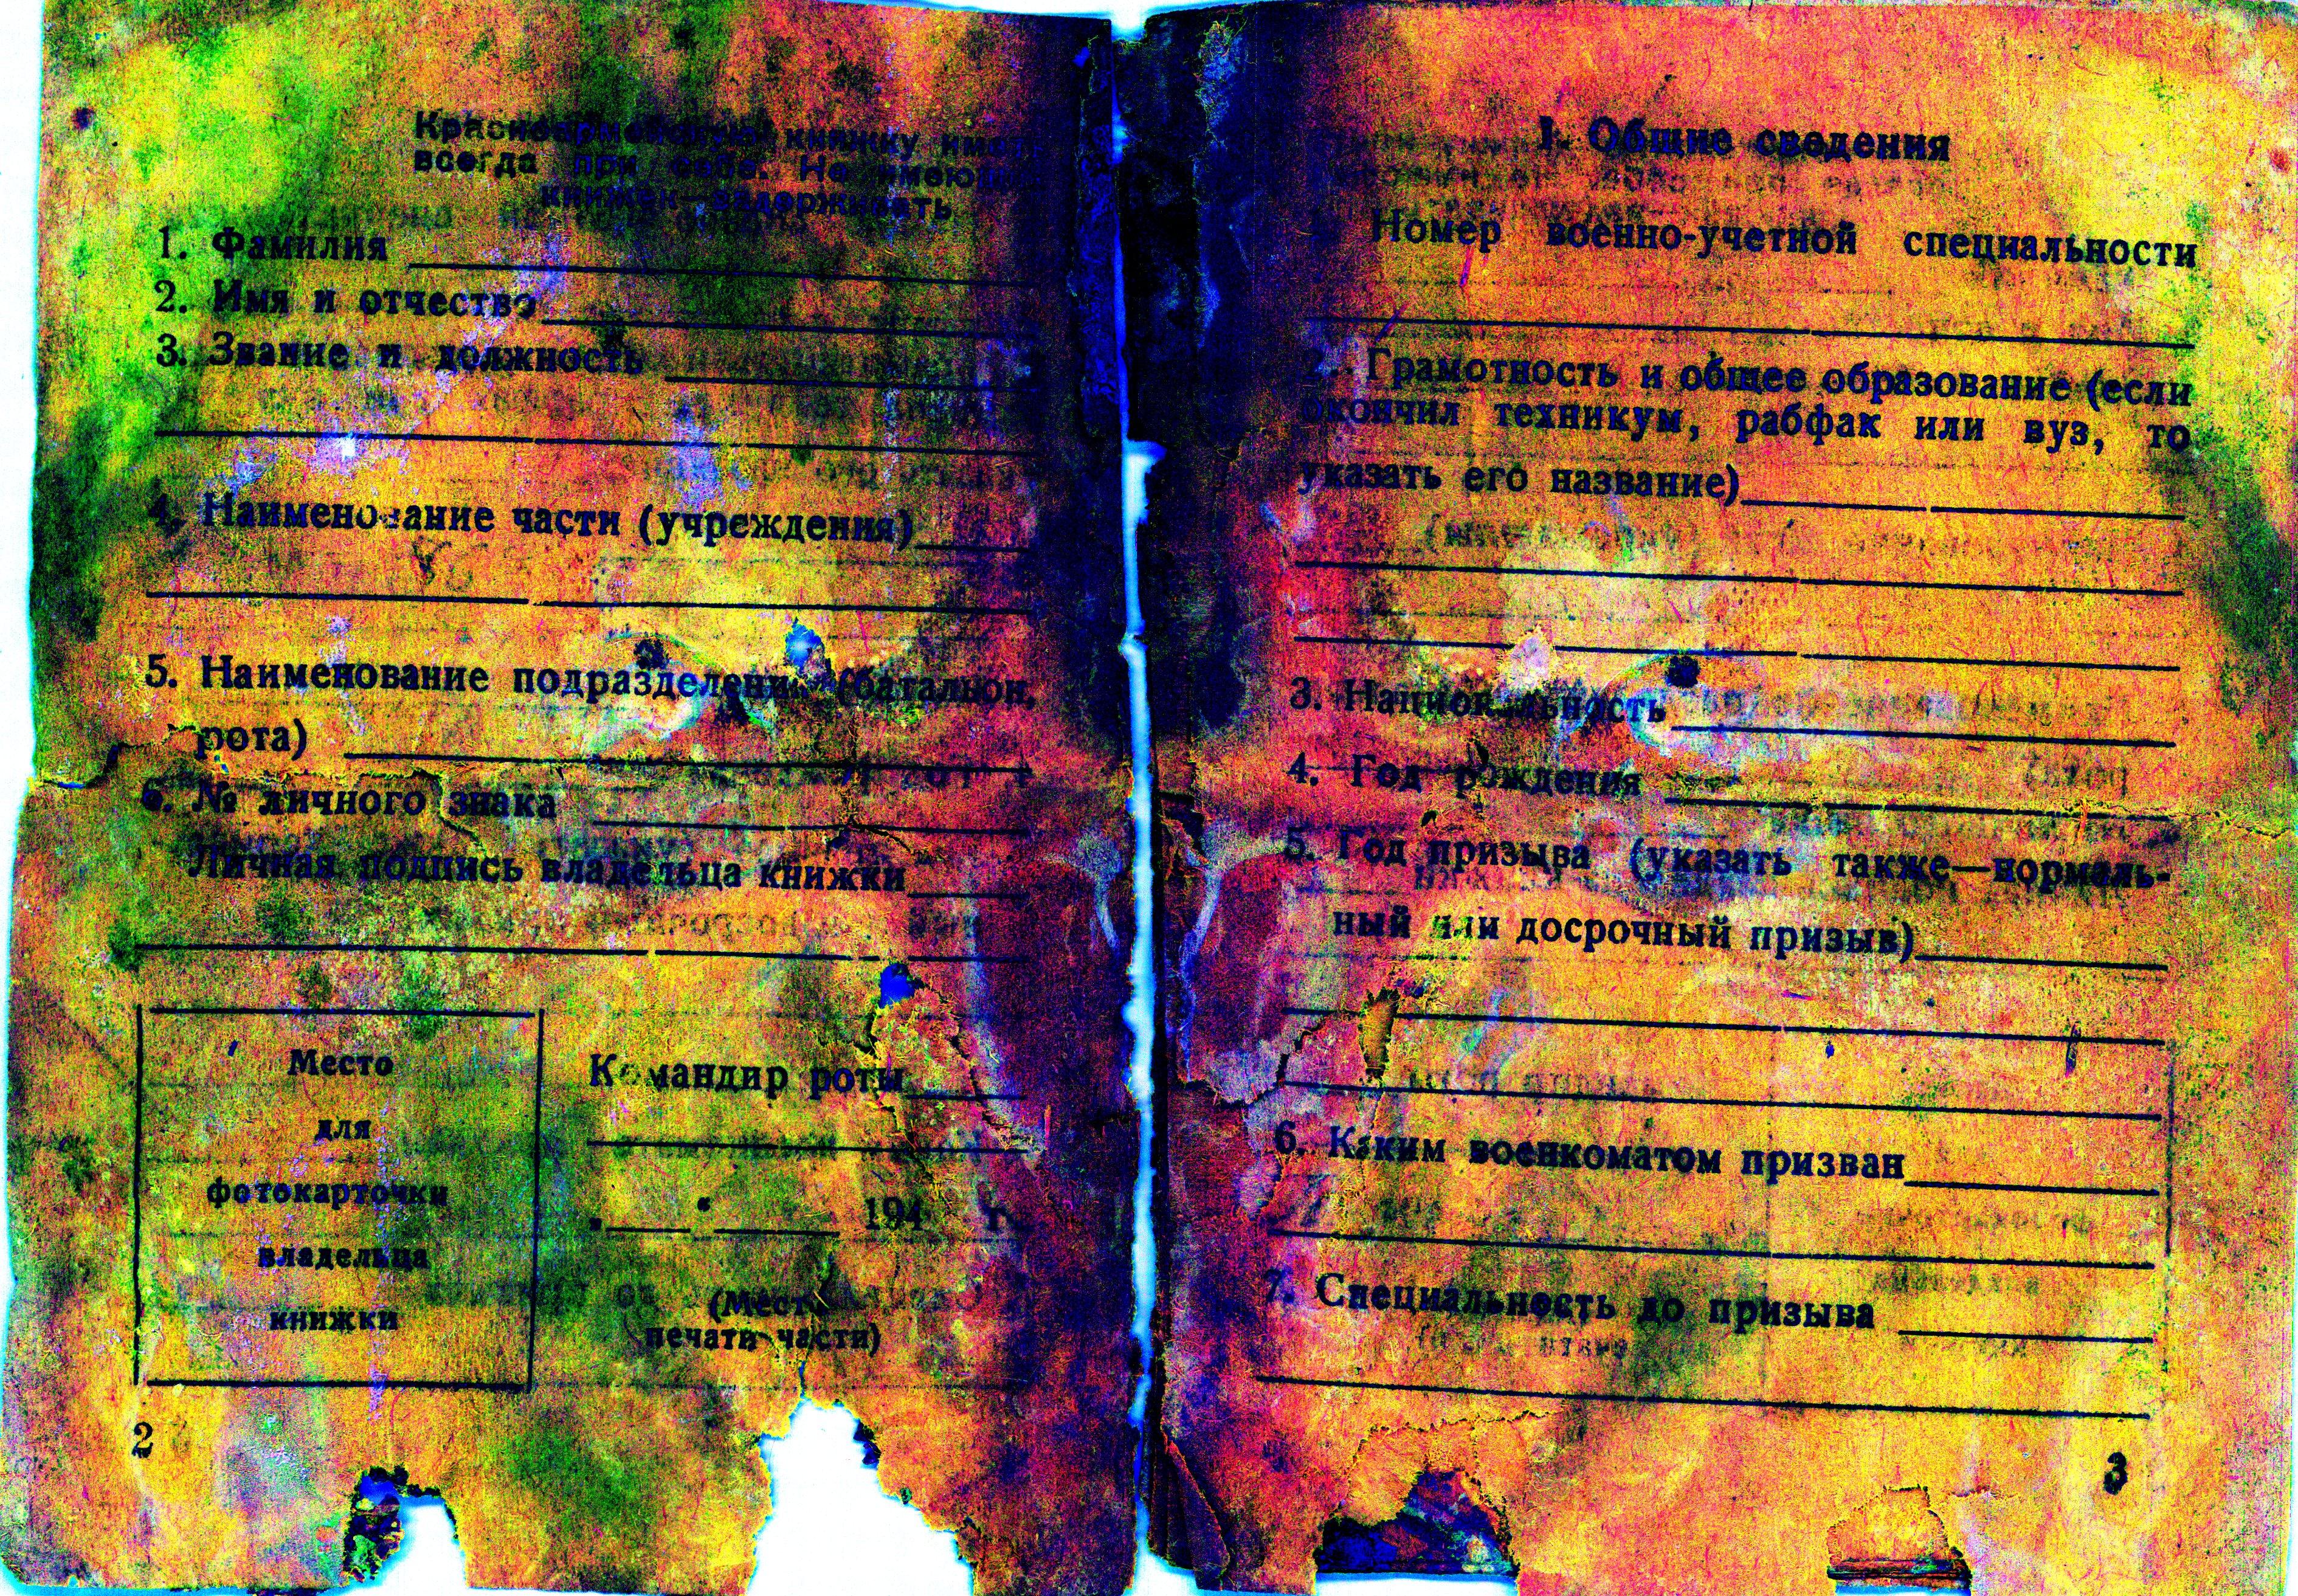 Красноармейскую книжку иметь
всегда при себе. Не имеющих
книжек—задерживать
1. Фамилия
2. Имя и отчество
3. Звание и должность
4. Наименование части (учреждения)
5. Наименование подразделения (батальон,
рота)
6. № личного знака
Личная подпись владельца книжки
Место
для
фотокарточки
владельца
книжки
Командир роты
„ “ 194 г.
(Место
печати части)
2
I. Общие сведения
Номер военно-учетной специальности
2. Грамотность и общее образование (если
окончил техникум, рабфак или вуз, то
указать его название)
3. Национальность
4. Год рождения
5. Год призыва (указать также—нормаль-
ный или досрочный призыв)
6. Каким военкоматом призван
7. Специальность до призыва
3